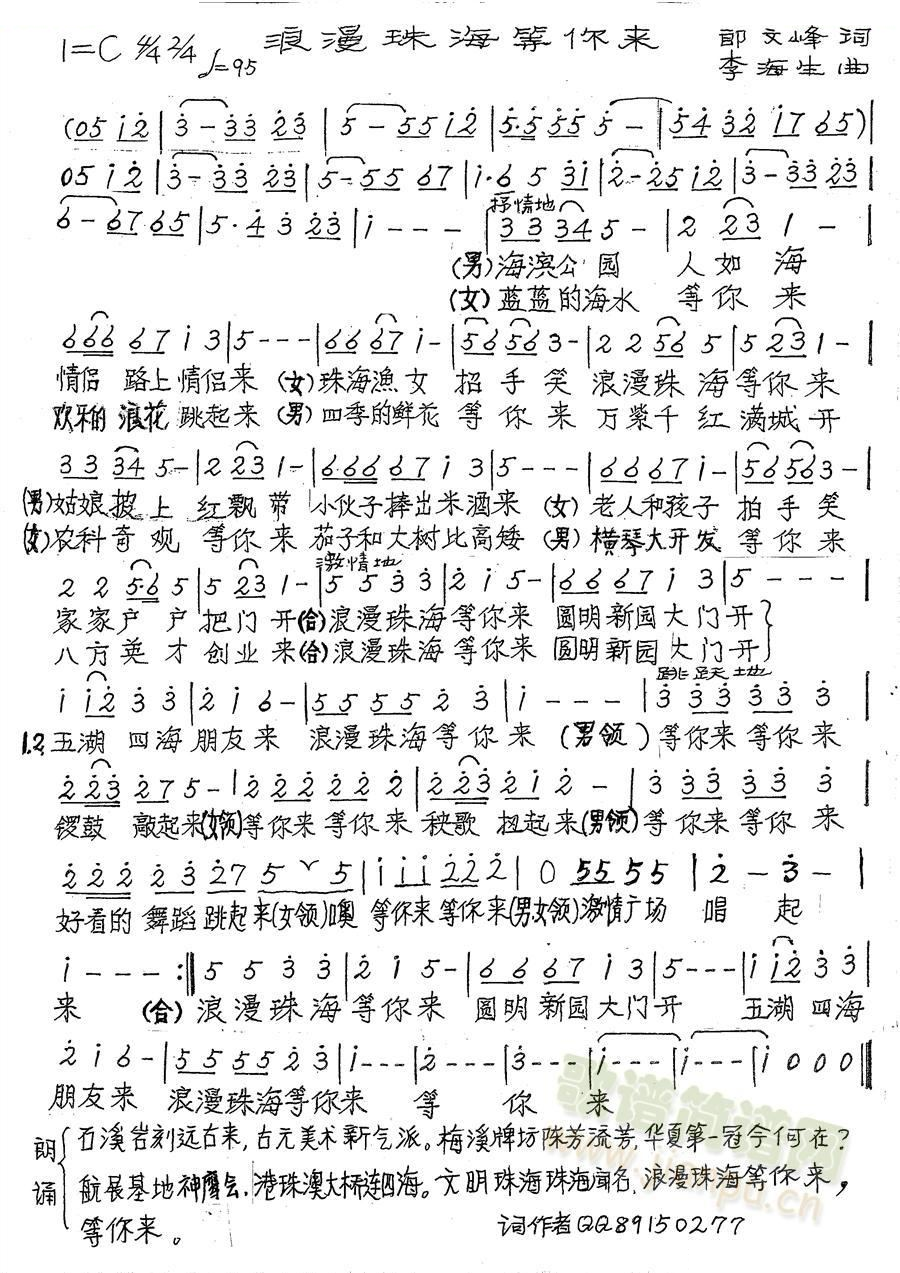 1=C 4/4 2/4 ♩=95 浪漫珠海等你来 郎文峰词
李海生曲
(05 i2̇ | 3̇ - 3̇3̇ 2̇3̇ | 5 - 55 i2̇ | 5̇·5̇ 5̇5̇ 5̇ - | 5̇4̇ 3̇2̇ i7 65) |
05 i2̇ | 3̇ - 3̇3̇ 2̇3̇ | 5 - 55 67 | i·6 5 3̇i | 2̇ - 2̇5 i2̇ | 3̇ - 3̇3̇ 2̇3̇ |
抒情地
6 - 67 65 | 5·4̇ 3̇ 2̇3̇ | i - - - | 33 34 5 - | 2 23 1 - |
(男)海滨公园 人如海
(女)蓝蓝的海水 等你来
666 67 i 3 | 5 - - - | 66 67 i - | 56 56 3 - | 2 2 56 5 | 5 23 1 - |
情侣路上情侣来 (女)珠海渔女 招手笑 浪漫珠海等你来
欢乐的浪花跳起来 (男)四季的鲜花 等你来 万紫千红满城开
33 34 5 - | 2 23 1 - | 6·6 66 67 i 3 | 5 - - - | 66 67 i - | 56 56 3 - |
(男)姑娘披上红飘带 小伙子捧出米酒来 (女)老人和孩子拍手笑
(女)农科奇观等你来 茄子和大树比高矮 (男)横琴大开发等你来
激情地
2 2 5·6 5 | 5 23 1 - | 5 5 3̇ 3̇ | 2̇ i 5 - | 66 67 i 3 | 5 - - -
家家户户把门开(合)浪漫珠海等你来 圆明新园大门开
八方英才创业来(合)浪漫珠海等你来 圆明新园大门开
跳跃地
i i2̇ 3̇ 3̇ | 2̇ i 6 - | 55 55 2̇ 3̇ | i - - - | 3̇ 3̇3̇ 3̇3̇ 3̇
1.2 五湖四海朋友来 浪漫珠海等你来 (男领)等你来等你来
2̇ 2̇3̇ 2̇7 5 - | 2̇ 2̇2̇ 2̇2̇ 2̇ | 2̇ 2̇3̇ 2̇i 2̇ - | 3̇ 3̇3̇ 3̇3̇ 3̇
锣鼓敲起来(女领)等你来等你来 秧歌扭起来(男领)等你来等你来
2̇ 2̇2̇ 2̇3̇ 2̇7 5 ˇ 5 | i ii 2̇2̇ 2̇ | 0 55 55 | 2̇ - 3̇ - |
好看的舞蹈跳起来(女领)噢 等你来等你来(男女领)激情广场唱起
i - - - :‖ 5 5 3̇ 3̇ | 2̇ i 5 - | 66 67 i 3 | 5 - - - | i i2̇ 3̇ 3̇ |
来 (合)浪漫珠海等你来 圆明新园大门开 五湖四海
2̇ i 6 - | 55 55 2̇ 3̇ | i - - - | 2̇ - - - | 3̇ - - - | i - - - | i - - - | i 0 0 0 ‖
朋友来 浪漫珠海等你来 等你来
歌谱简谱网
www.jianpu.cn
朗诵 石溪岩刻远古来,古元美术新气派。梅溪牌坊陈芳流芳,华夏第一冠今何在?
航展基地神鹰会,港珠澳大桥连四海。文明珠海珠海闻名,浪漫珠海等你来,
等你来。 词作者QQ89150277